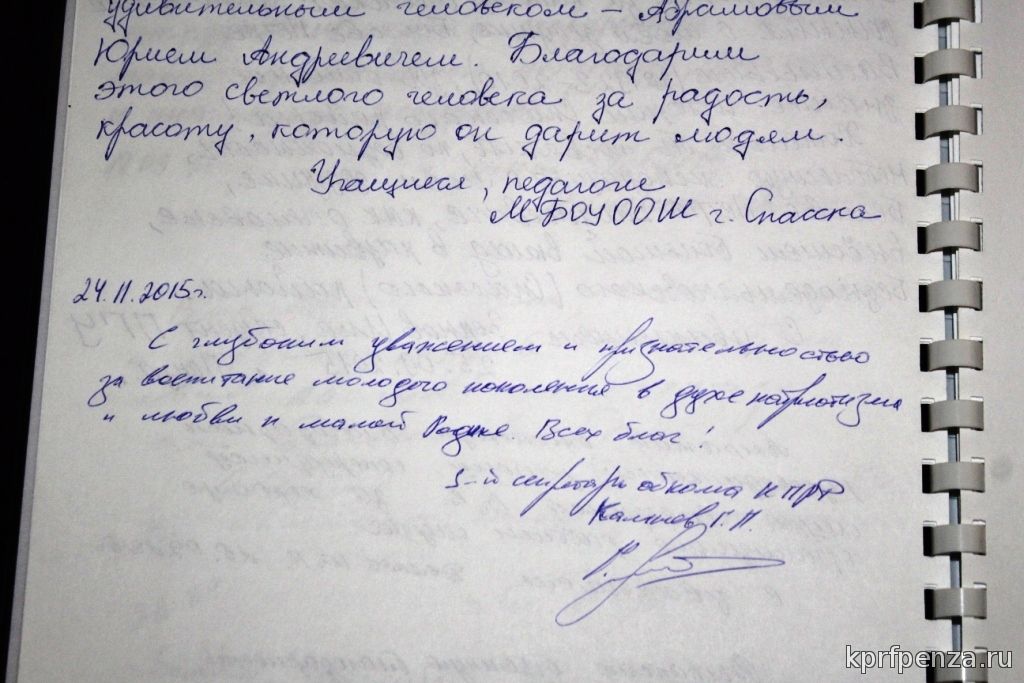 удивительным человеком – Абрамовым
Юрием Андреевичем. Благодарим
этого светлого человека за радость,
красоту, которую он дарит людям.
Учащиеся, педагоги
МБОУООШ г. Спасска
24.11.2015г.
С глубоким уважением и признательностью
за воспитание молодого поколения в духе патриотизма
и любви к малой Родине. Всех благ!
1-й секретарь обкома КПРФ
Камнев Г.П.
kprfpenza.ru